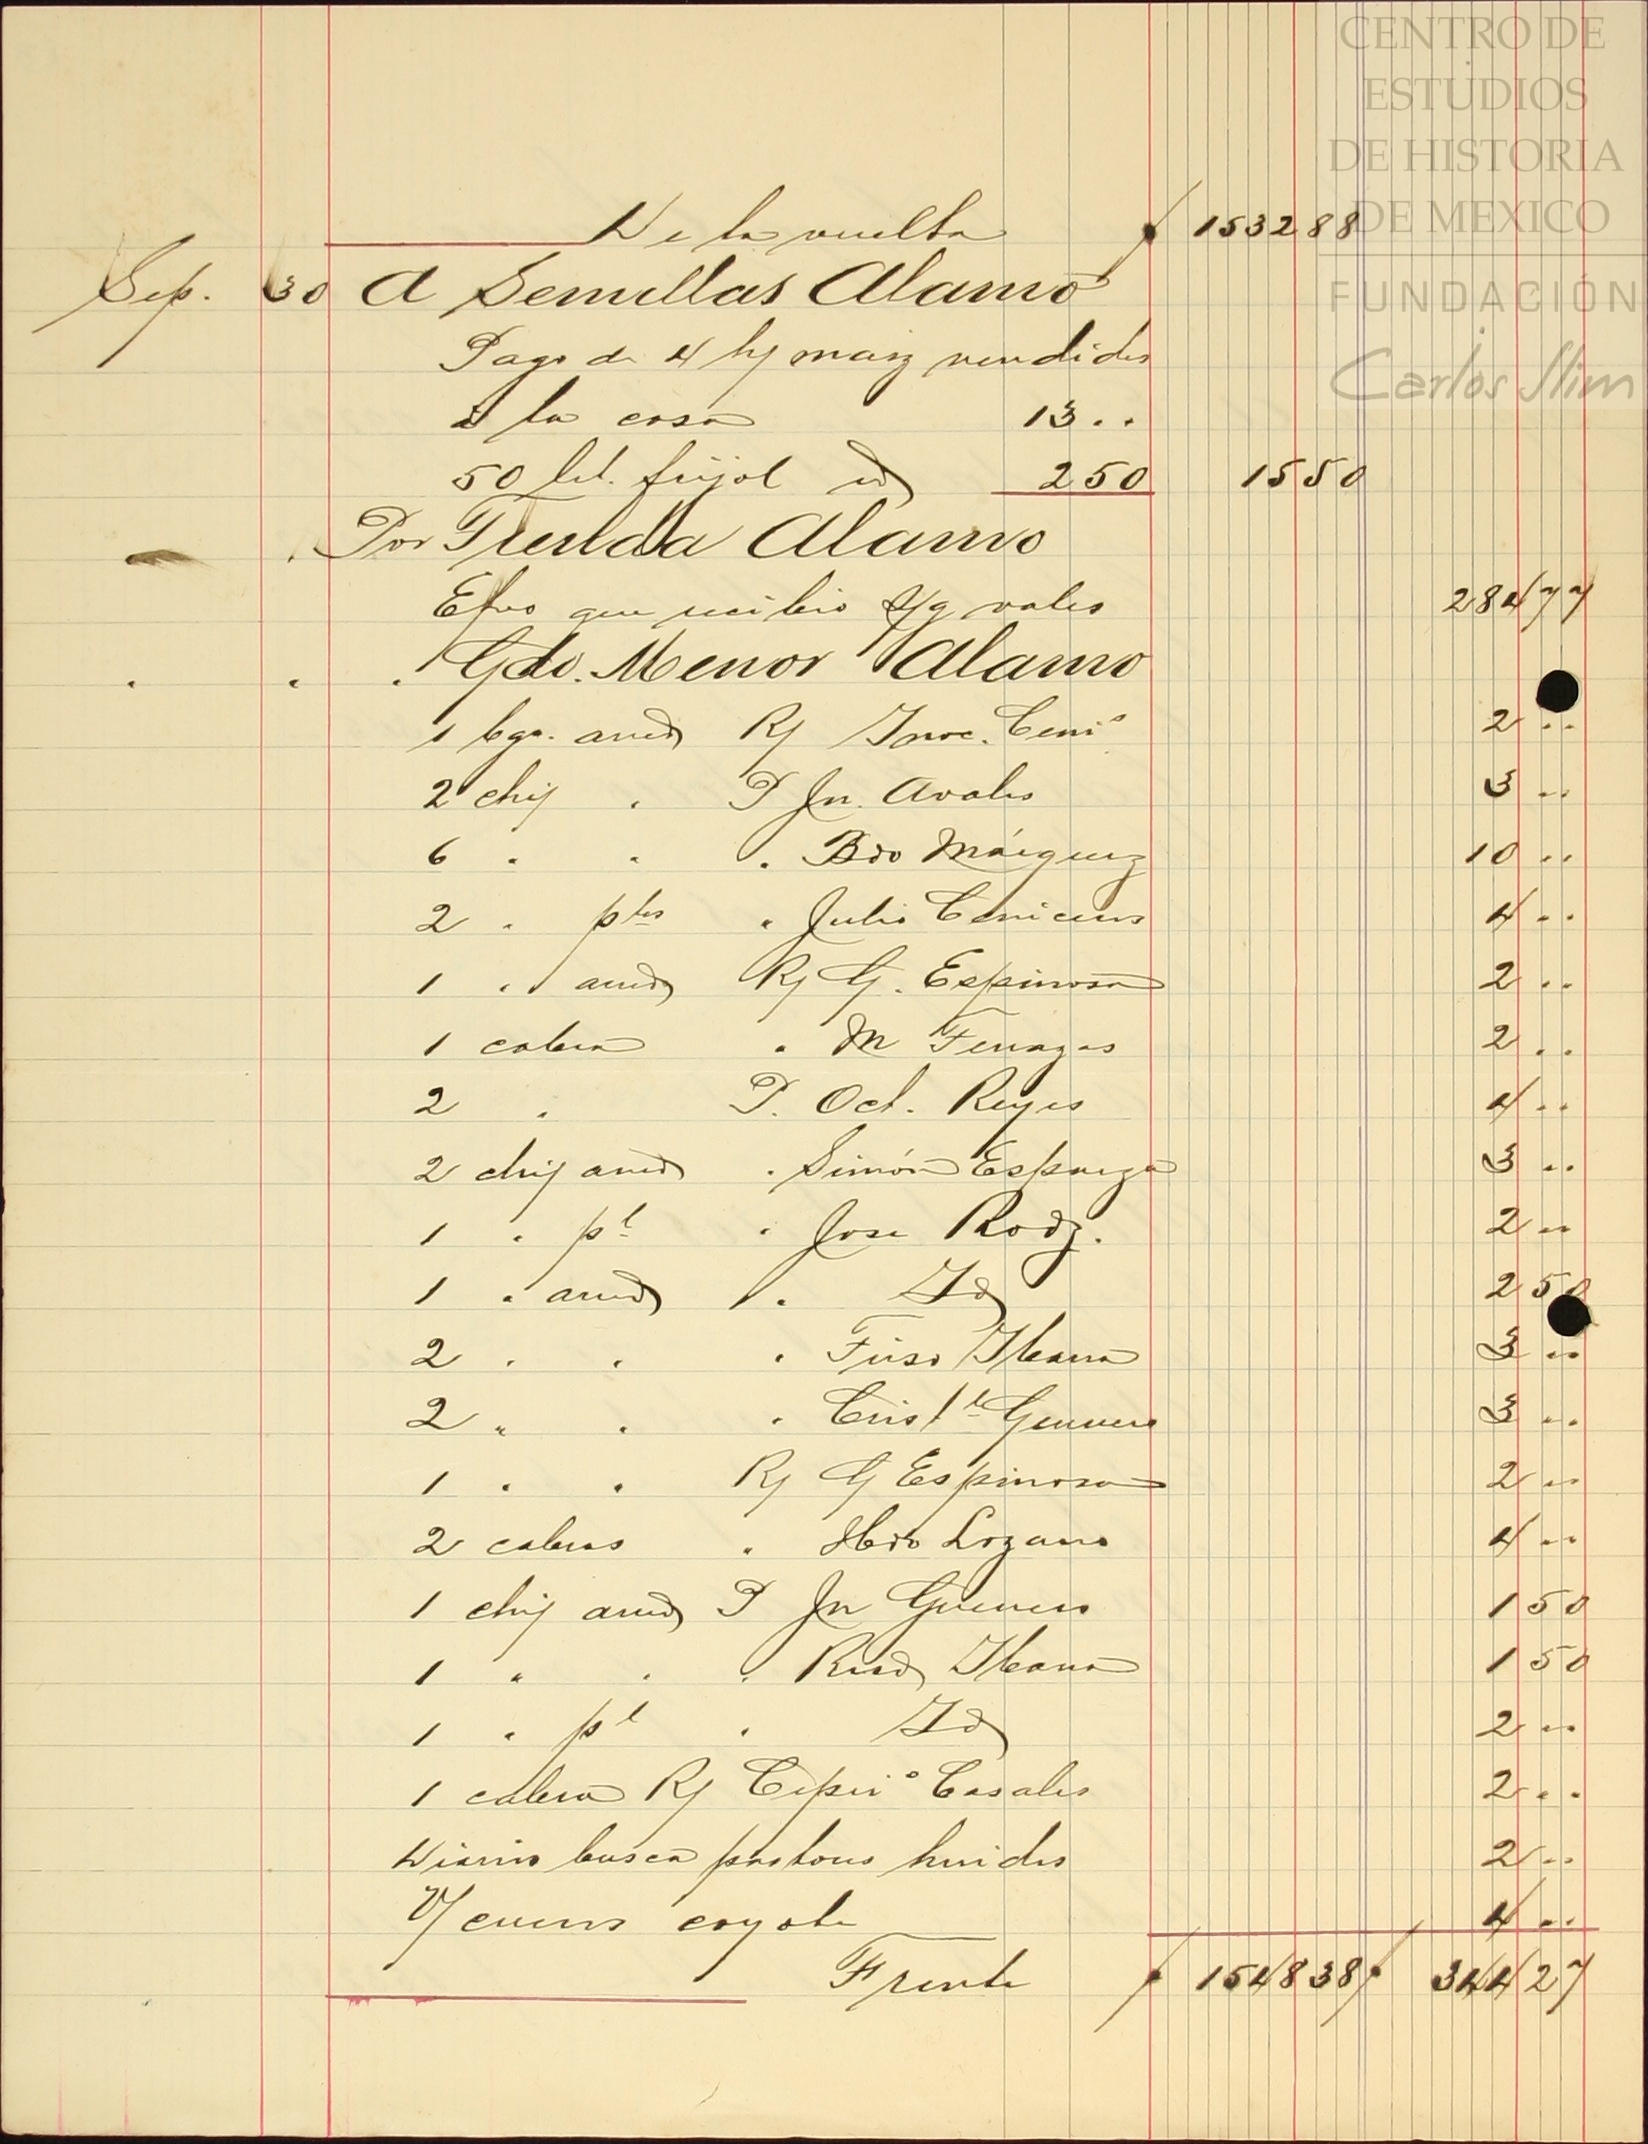 CENTRO DE
ESTUDIOS
DE HISTORIA
DE MEXICO
FUNDACIÓN
Carlos Slim
De la vuelta $ 1532 88
Sep. 30 A Semillas Alamo
Pago de 4 hj maiz vendidos
á la casa 13 ..
50 lit. frijol id 2 50 15 50
" . Por Tienda Alamo
Efvo que recibio s/g vales 284 77
. . . Gdo. Menor Alamo
1 bga. aned Rj Inoc. Cenio 2 ..
2 chij . P Jn. Avalos 3 ..
6 . . . Bdo Márquez 10 ..
2 . ptes . Julio Ceniceros 4 ..
1 . aned Rj G. Espinosa 2 ..
1 cabra . M 2 ..
2 . P. Oct. Reyes 4 ..
2 chij aned . Simón Esparza 3 ..
1 . pt . Jose Rodz. 2 ..
1 . aned . Id 2 50
2 . . . Tirso Ibarra 3 ..
2 " . . Cristl Guerrero 3 ..
1 . . Rj G Espinosa 2 ..
2 cabras . Hdo Lozano 4 ..
1 chij aned P Jn Guerrero 1 50
1 " . . Rusd Ibarra 1 50
1 . pt . Id 2 ..
1 cabra Rj Ciprio Casales 2 ..
Diario busca pastores huidos 2 ..
V/ cueros coyote 4 ..
Frente $ 1548 38 $ 344 27